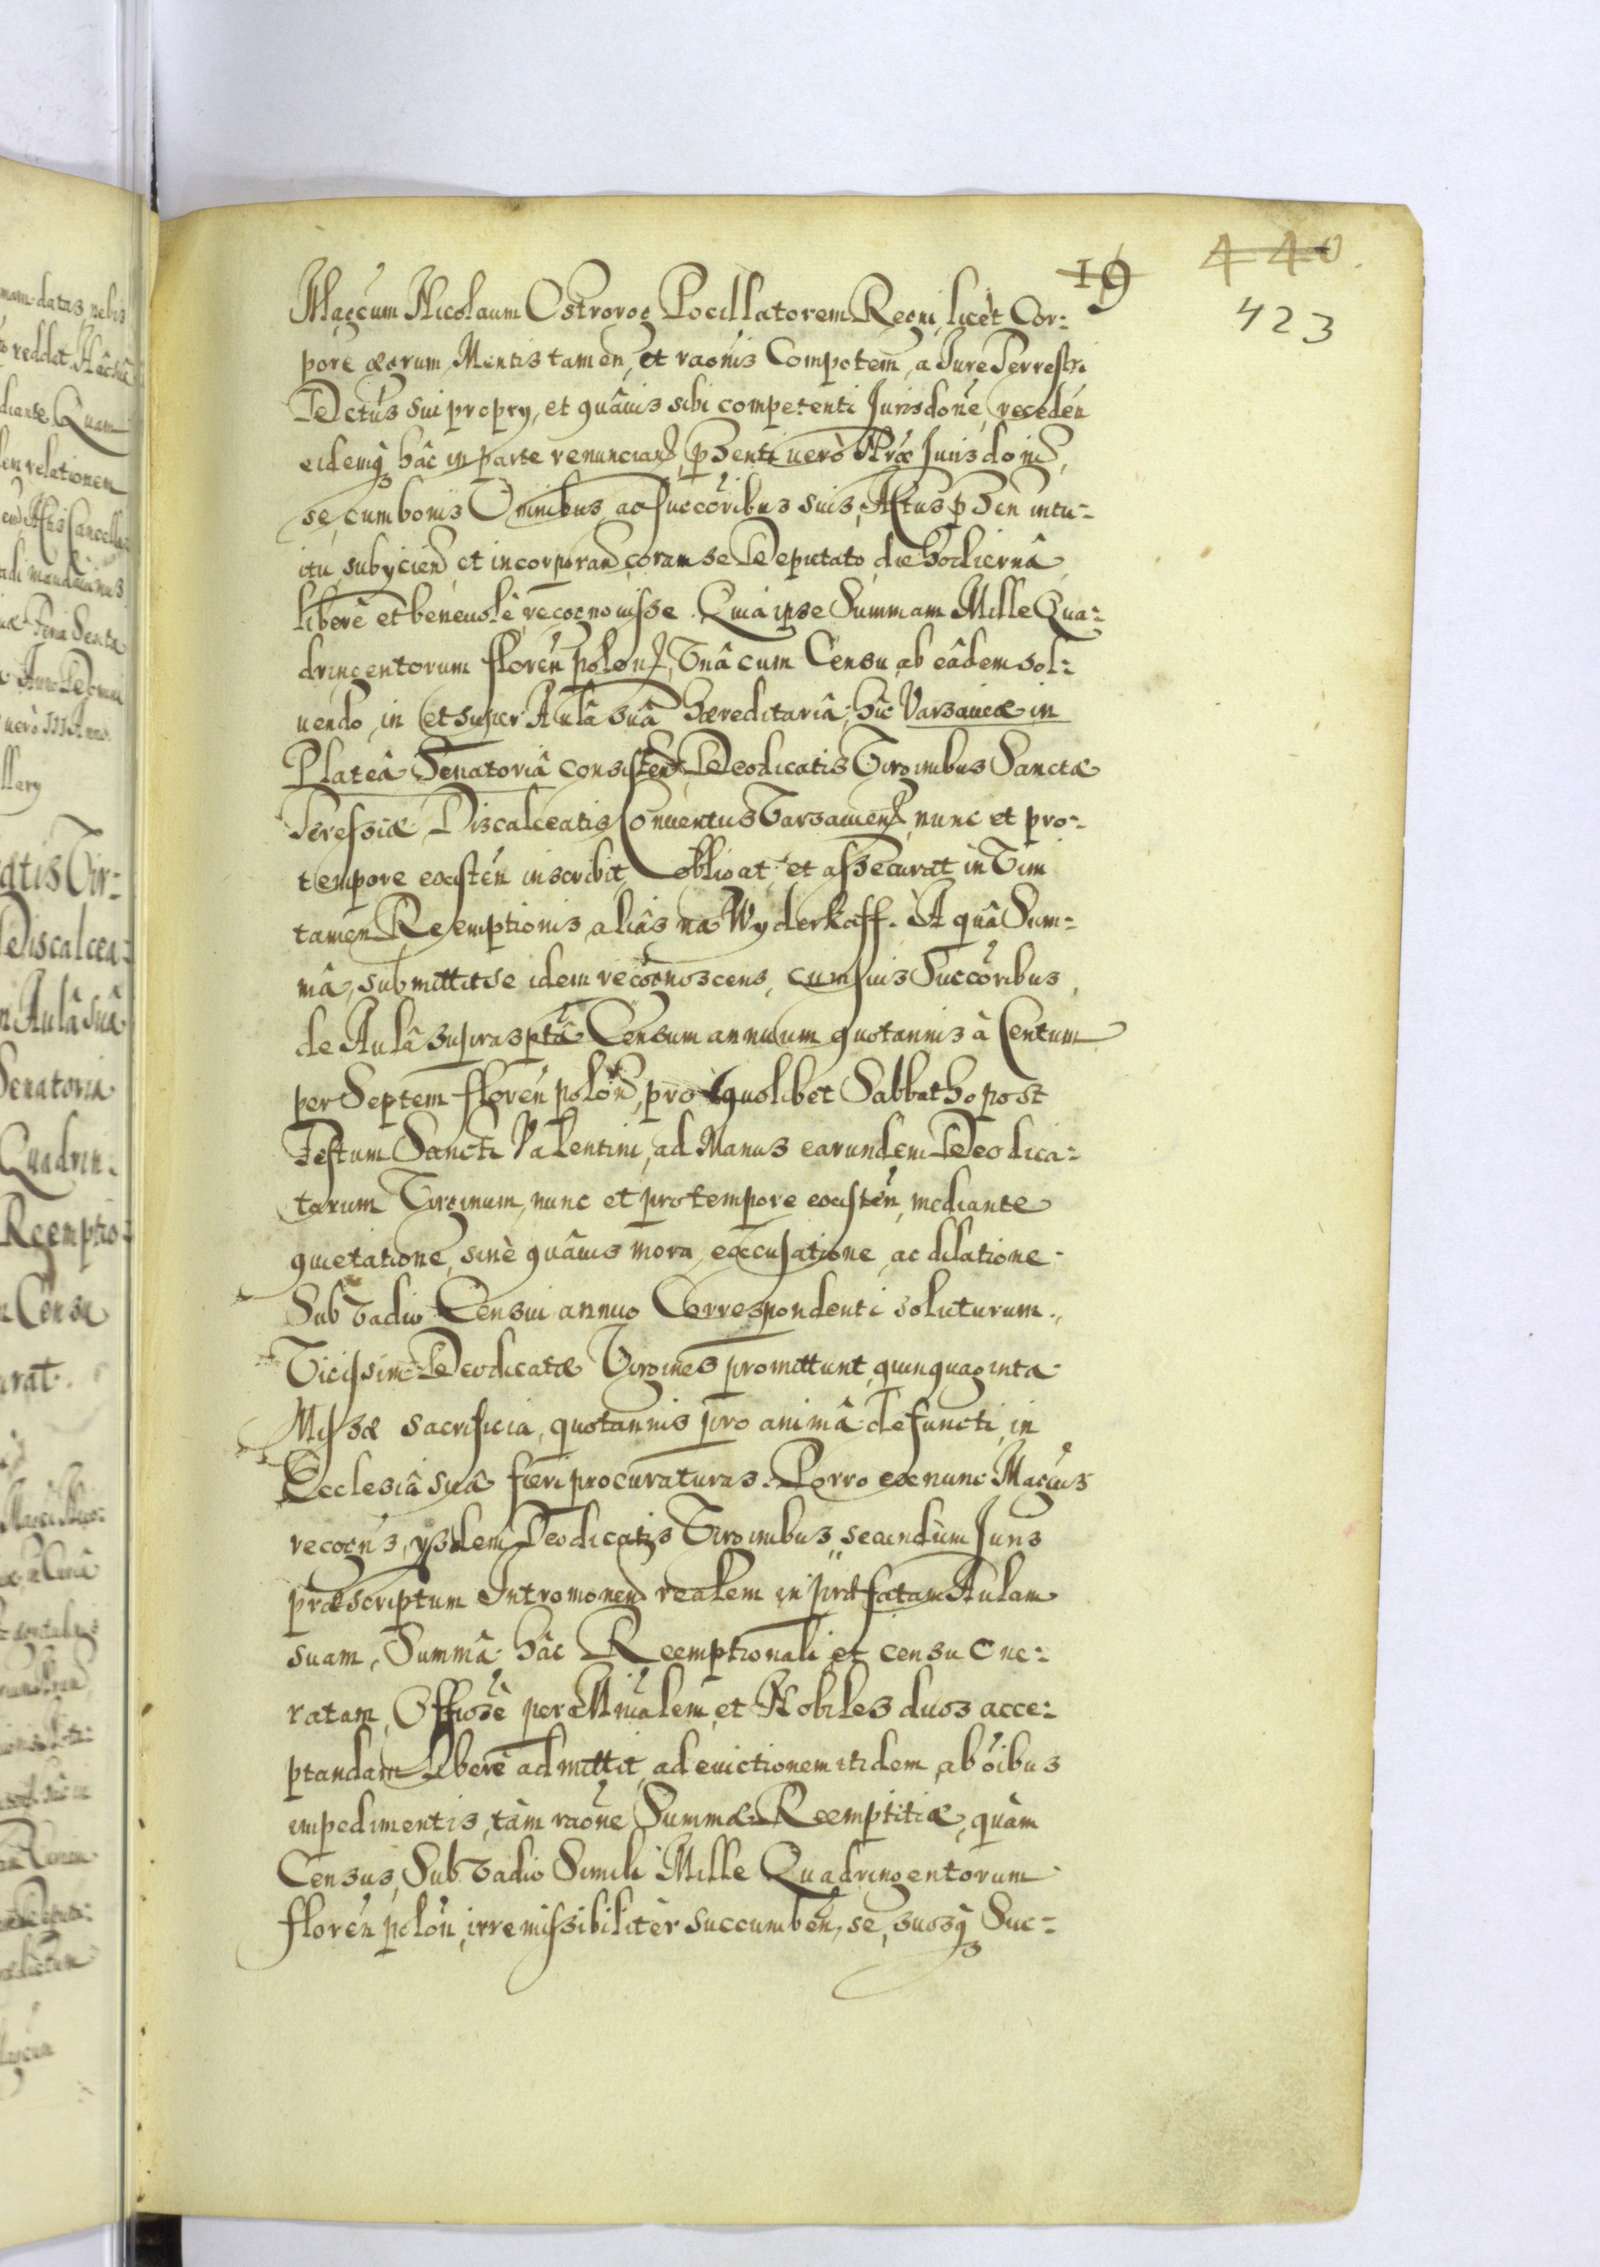 19
440
423
Magcum Nicolaum Ostrorog Pocillatorem Regni, licet Cor-
pore ægrum, Mentis tamen, et raonis Compotem, a Jure Terrestri
Dctus sui proprij, et quâuis sibi competenti Jurisdone, receden
eidemq hâc in parte renuncian, pnti uero Nræ Jurisdoni,
se, cum bonis Omnibus ac succoribus suis, Actus pntn intu-
itu, subijcien, et incorporan, coram se Deputato, die hodiernâ,
liberè et beneuolè recognouisse. Quia ipse Summam Mille Qua-
dringentorum floren polon, Vnâ cum Censu, ab eâdem sol-
uendo, in et super Aulâ suâ hæreditariâ, hîc Varsauiæ in
Plateâ Senatoriâ consisten, Deodicatis Virginibus Sanctæ
Teressiæ Discalceatis Conuentus Varsauien, nunc et pro
tempore existen inscribit, obligat, et assecurat in Vim
tamen Reemptionis, aliâs na Wyderkaff. A quâ Sum-
mâ, submittit se idem recognoscens, cum suis Succoribus,
de Aulâ suprasptâ Censum annuum quotannis à Centum
per Septem floren polon, pro quolibet Sabbatho post
Festum Sancti Valentini, ad Manus earundem Deodica-
tarum Virginum, nunc et pro tempore existen, mediante
quietatione, sinè quâuis mora, excusatione, ac dilatione
Sub Vadio Censui annuo Correspondenti soluturum.
Vicissim Deodicatæ Virgines promittunt, quinquaginta
Missæ sacrificia, quotannis pro animâ defuncti, in
Ecclesiâ suâ fieri procuraturas. Porro ex nunc Magcus
recogns, ijsdem Deodicatis Virginibus, secundùm Juris
præscriptum Intromonem realem in præfatam Aulam
suam, Summâ hâc Reemptionali et censu One-
ratam, Offiosè per Mnialem, et Nobiles duos acce-
ptandam liberè admittit, ad euictionem itidem, ab oibus
impedimentis, tàm raone Summæ Reemptitiæ, quàm
Census, Sub Vadio Simili Mille Quadringentorum
floren polon, irremissibilitèr succumben, se, suosq Suc-